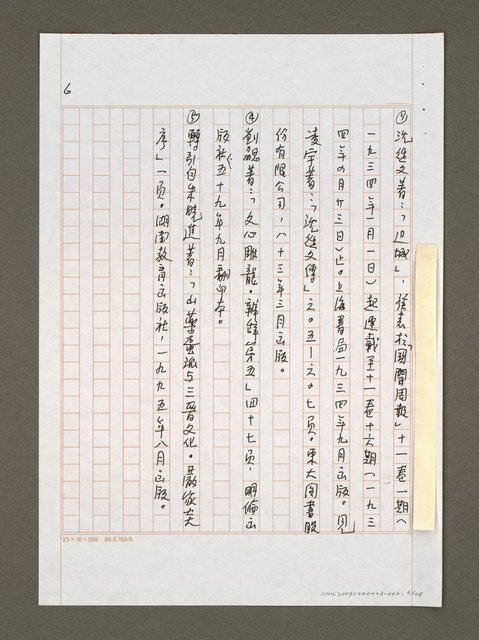 6
③沈從文著:「边城」,發表於「國聞周報」十一卷一期(
一九三四年一月一日)起連載至十一卷十六期(一九三
四年四月廿三日)止。上海書局一九三四年九月出版。見
凌宇著:「沈從文傳」六。五—六。七頁。東大图書股
份有限公司,八十三年三月出版。
④劉勰著:「文心雕龍。辨騷第五」四十七頁,明倫出
版社,五十九年九月翻印本。
⑤轉引自朱曉進著:「山藥蛋派与三晋文化。丑嚴家炎
序」一頁。湖南教育出版社,一九九五年八月出版。
25×10=300 86.5.100本
NMTL20090240423-002. 6/08